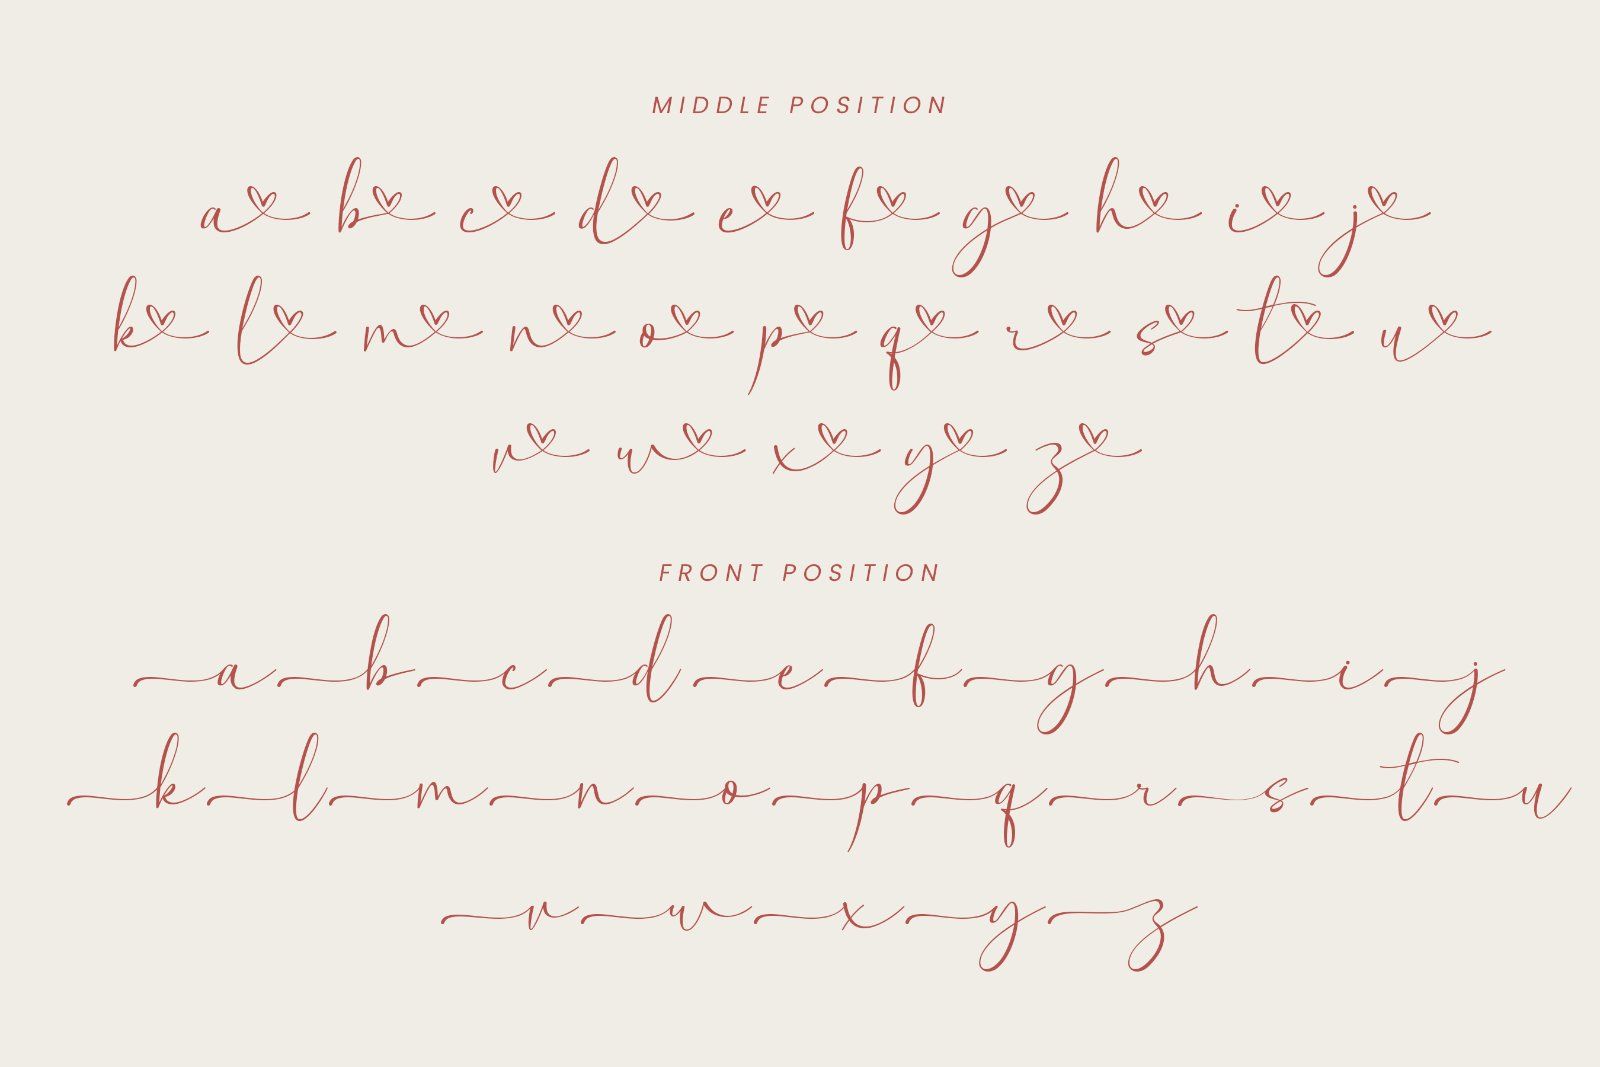 MIDDLE POSITION
a b c d e f g h i j
k l m n o p q r s t u
v w x y z
FRONT POSITION
a b c d e f g h i j
k l m n o p q r s t u
v w x y z